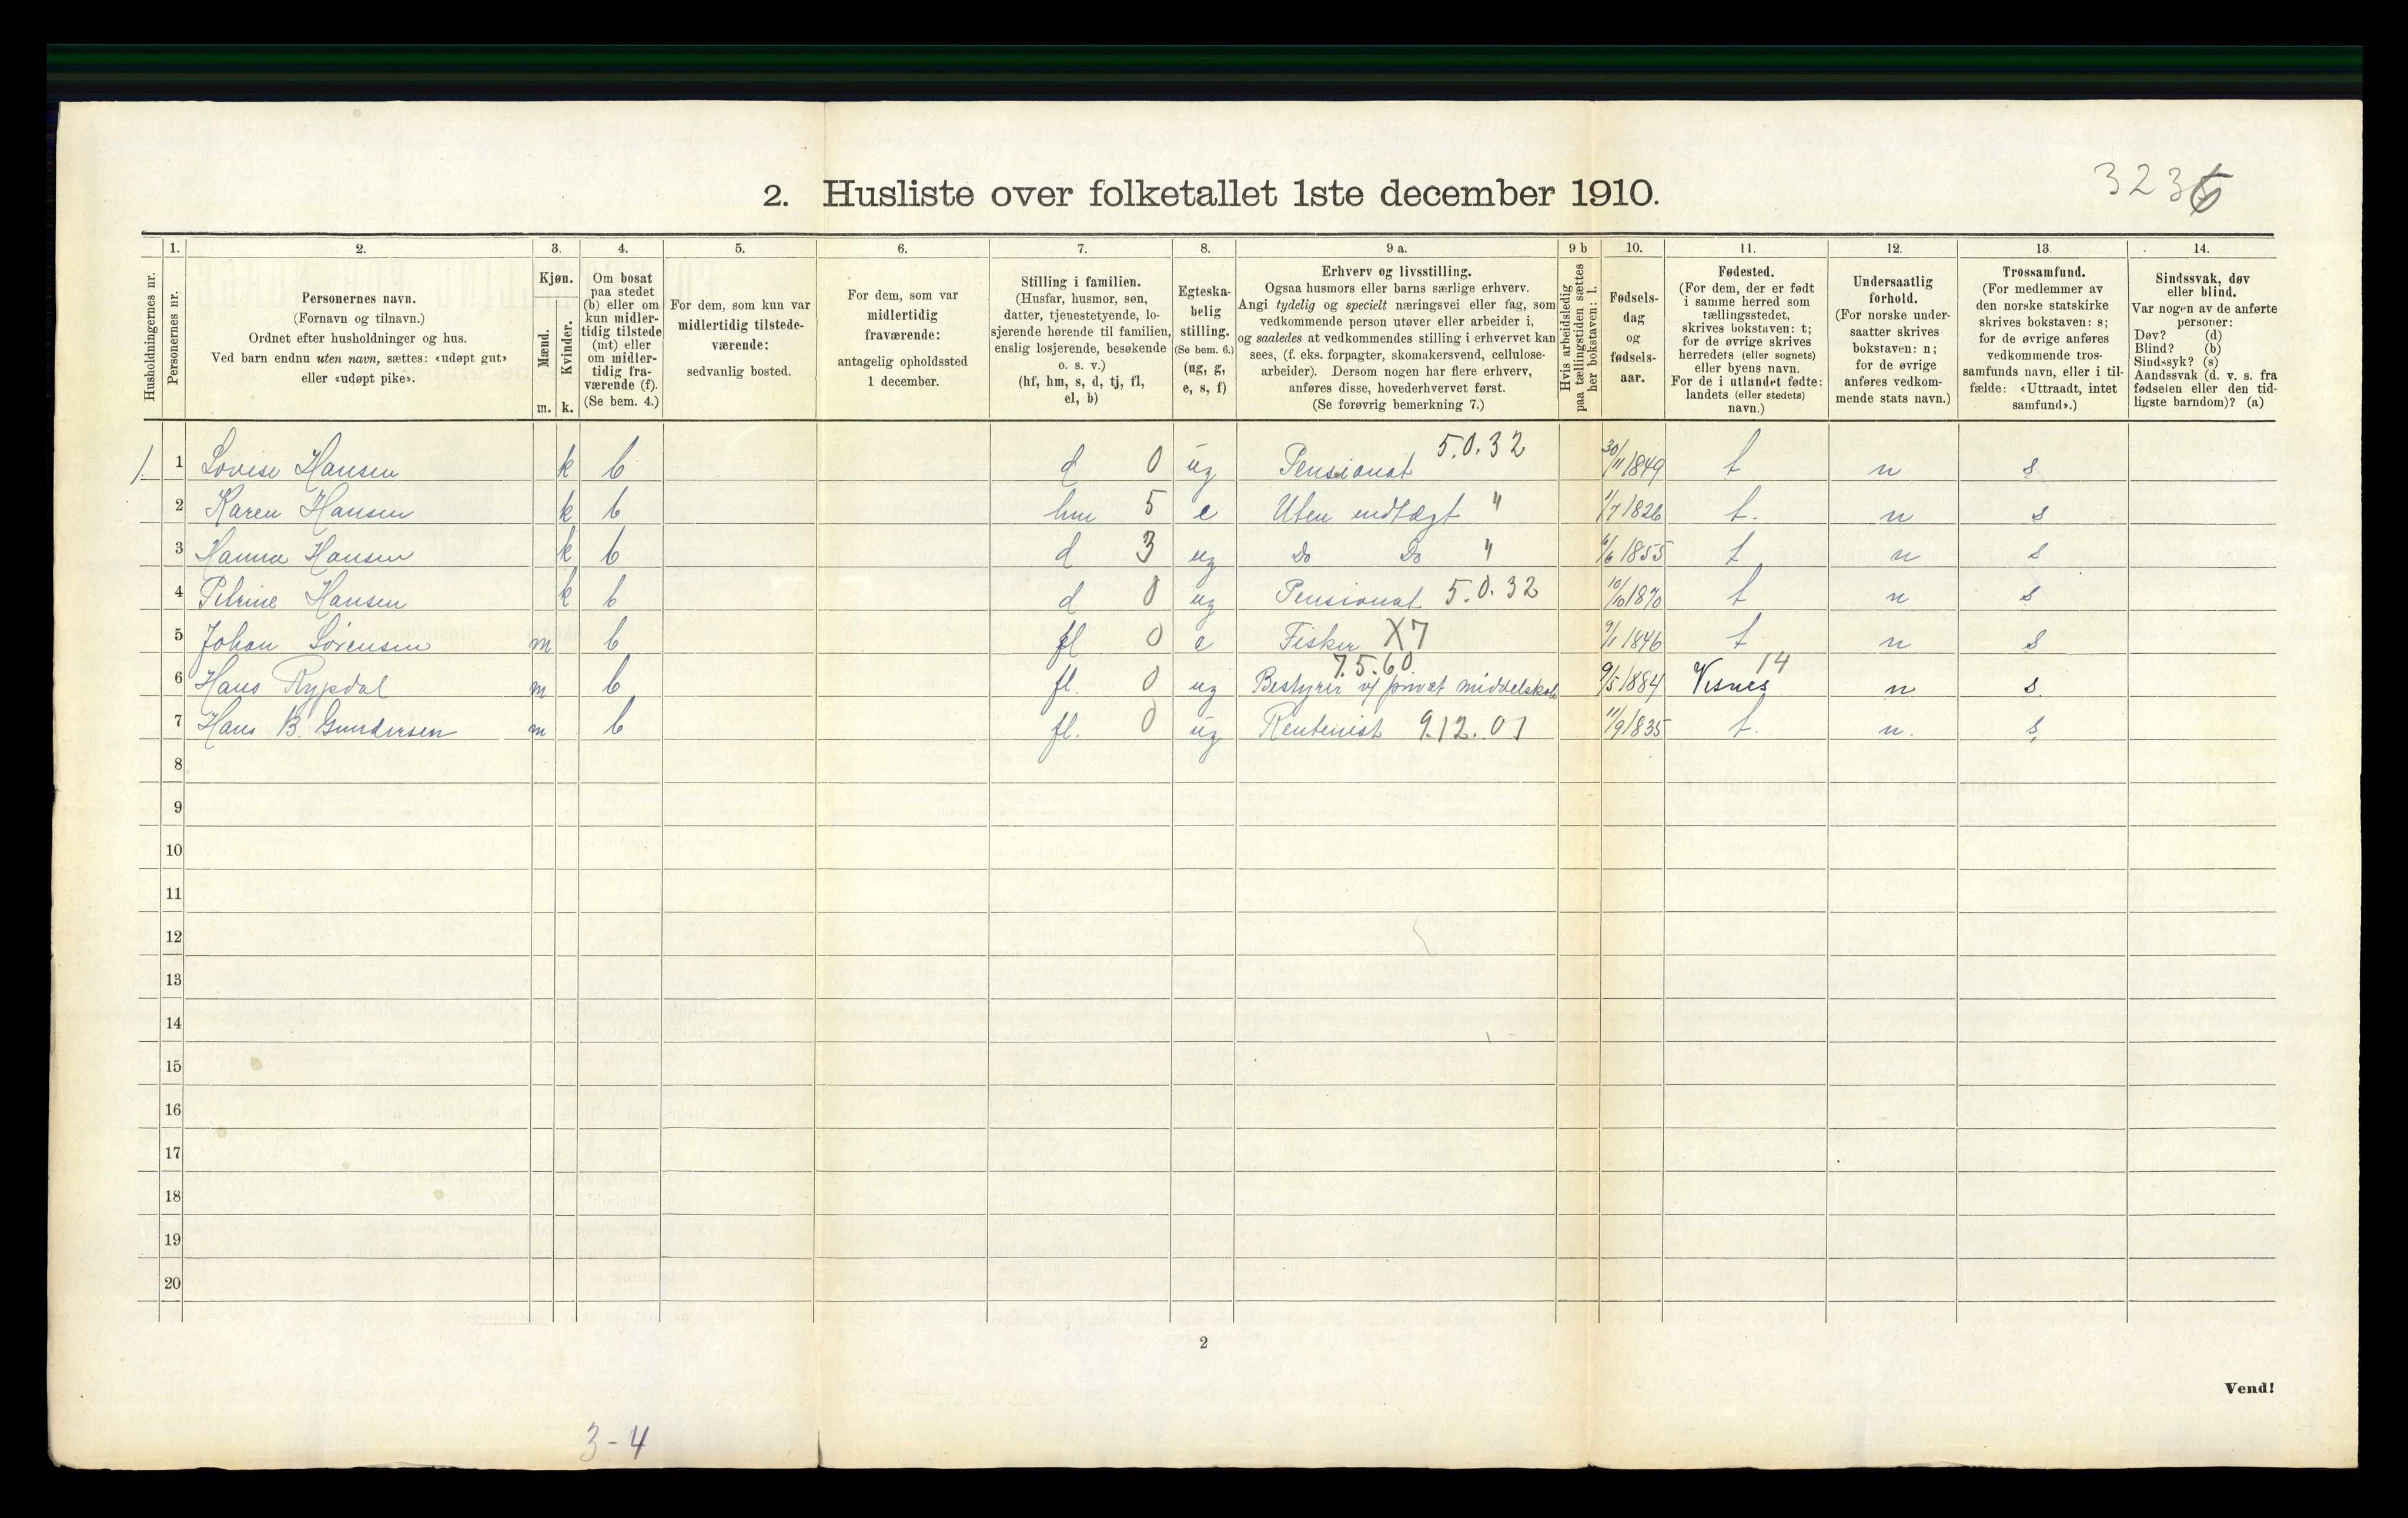 3235 6
2. Husliste over folketallet 1ste december 1910.
Husholdningernes nr.
1. Personernes nr.
2. Personernes navn. (Fornavn og tilnavn.) Ordnet efter husholdninger og hus. Ved barn endnu uten navn, sættes: «udøpt gut» eller «udøpt pike».
3. Kjøn. Mænd. m. Kvinder. k.
4. Om bosat paa stedet (b) eller om kun midlertidig tilstede (mt) eller om midlertidig fraværende (f). (Se bem. 4.)
5. For dem, som kun var midlertidig tilstedeværende: sedvanlig bosted.
6. For dem, som var midlertidig fraværende: antagelig opholdssted 1 december.
7. Stilling i familien. (Husfar, husmor, søn, datter, tjenestetyende, losjerende hørende til familien, enslig losjerende, besøkende o. s. v.) (hf, hm, s, d, tj, fl, el, b)
8. Egteskabelig stilling. (Se bem. 6.) (ug, g, e, s, f)
9 a. Erhverv og livsstilling. Ogsaa husmors eller barns særlige erhverv. Angi tydelig og specielt næringsvei eller fag, som vedkommende person utøver eller arbeider i, og saaledes at vedkommendes stilling i erhvervet kan sees, (f. eks. forpagter, skomakersvend, cellulosearbeider). Dersom nogen har flere erhverv, anføres disse, hovederhvervet først. (Se forøvrig bemerkning 7.)
9 b Hvis arbeidsledig paa tællingstiden sættes her bokstaven: l.
10. Fødselsdag og fødselsaar.
11. Fødested. (For dem, der er født i samme herred som tællingsstedet, skrives bokstaven: t; for de øvrige skrives herredets (eller sognets) eller byens navn. For de i utlandet fødte: landets (eller stedets) navn.)
12. Undersaatlig forhold. (For norske undersaatter skrives bokstaven: n; for de øvrige anføres vedkommende stats navn.)
13. Trossamfund. (For medlemmer av den norske statskirke skrives bokstaven: s; for de øvrige anføres vedkommende trossamfunds navn, eller i tilfælde: «Uttraadt, intet samfund».)
14. Sindssvak, døv eller blind. Var nogen av de anførte personer: Døv? (d) Blind? (b) Sindssyk? (s) Aandssvak (d. v. s. fra fødselen eller den tidligste barndom)? (a)
1. 1 Lovise Hansen k b d 0 ug Pensionat 5.0.32 30/11 1849 t n s
2 Karen Hansen k b hm 5 e Uten indtægt " 1/7 1826 t. n s
3 Hanna Hansen k b d 3 ug Do Do " 6/6 1855 t n s
4 Petrine Hansen k b d 0 ug Pensionat 5.0.32 10/10 1870 t n s
5 Johan Sørensen m b fl 0 e Fisker X7 9/1 1846 t n s
6 Hans Rypdal m b fl. 0 ug Bestyrer v/ privat middelskole 7.5.60 9/5 1884 Vesnes 14 n s.
7 Hans B. Gundersen m b fl. 0 ug Rentenist 9.12.01 11/9 1835 t. n. s.
8
9
10
11
12
13
14
15
16
17
18
19
20
2
Vend!
3-4